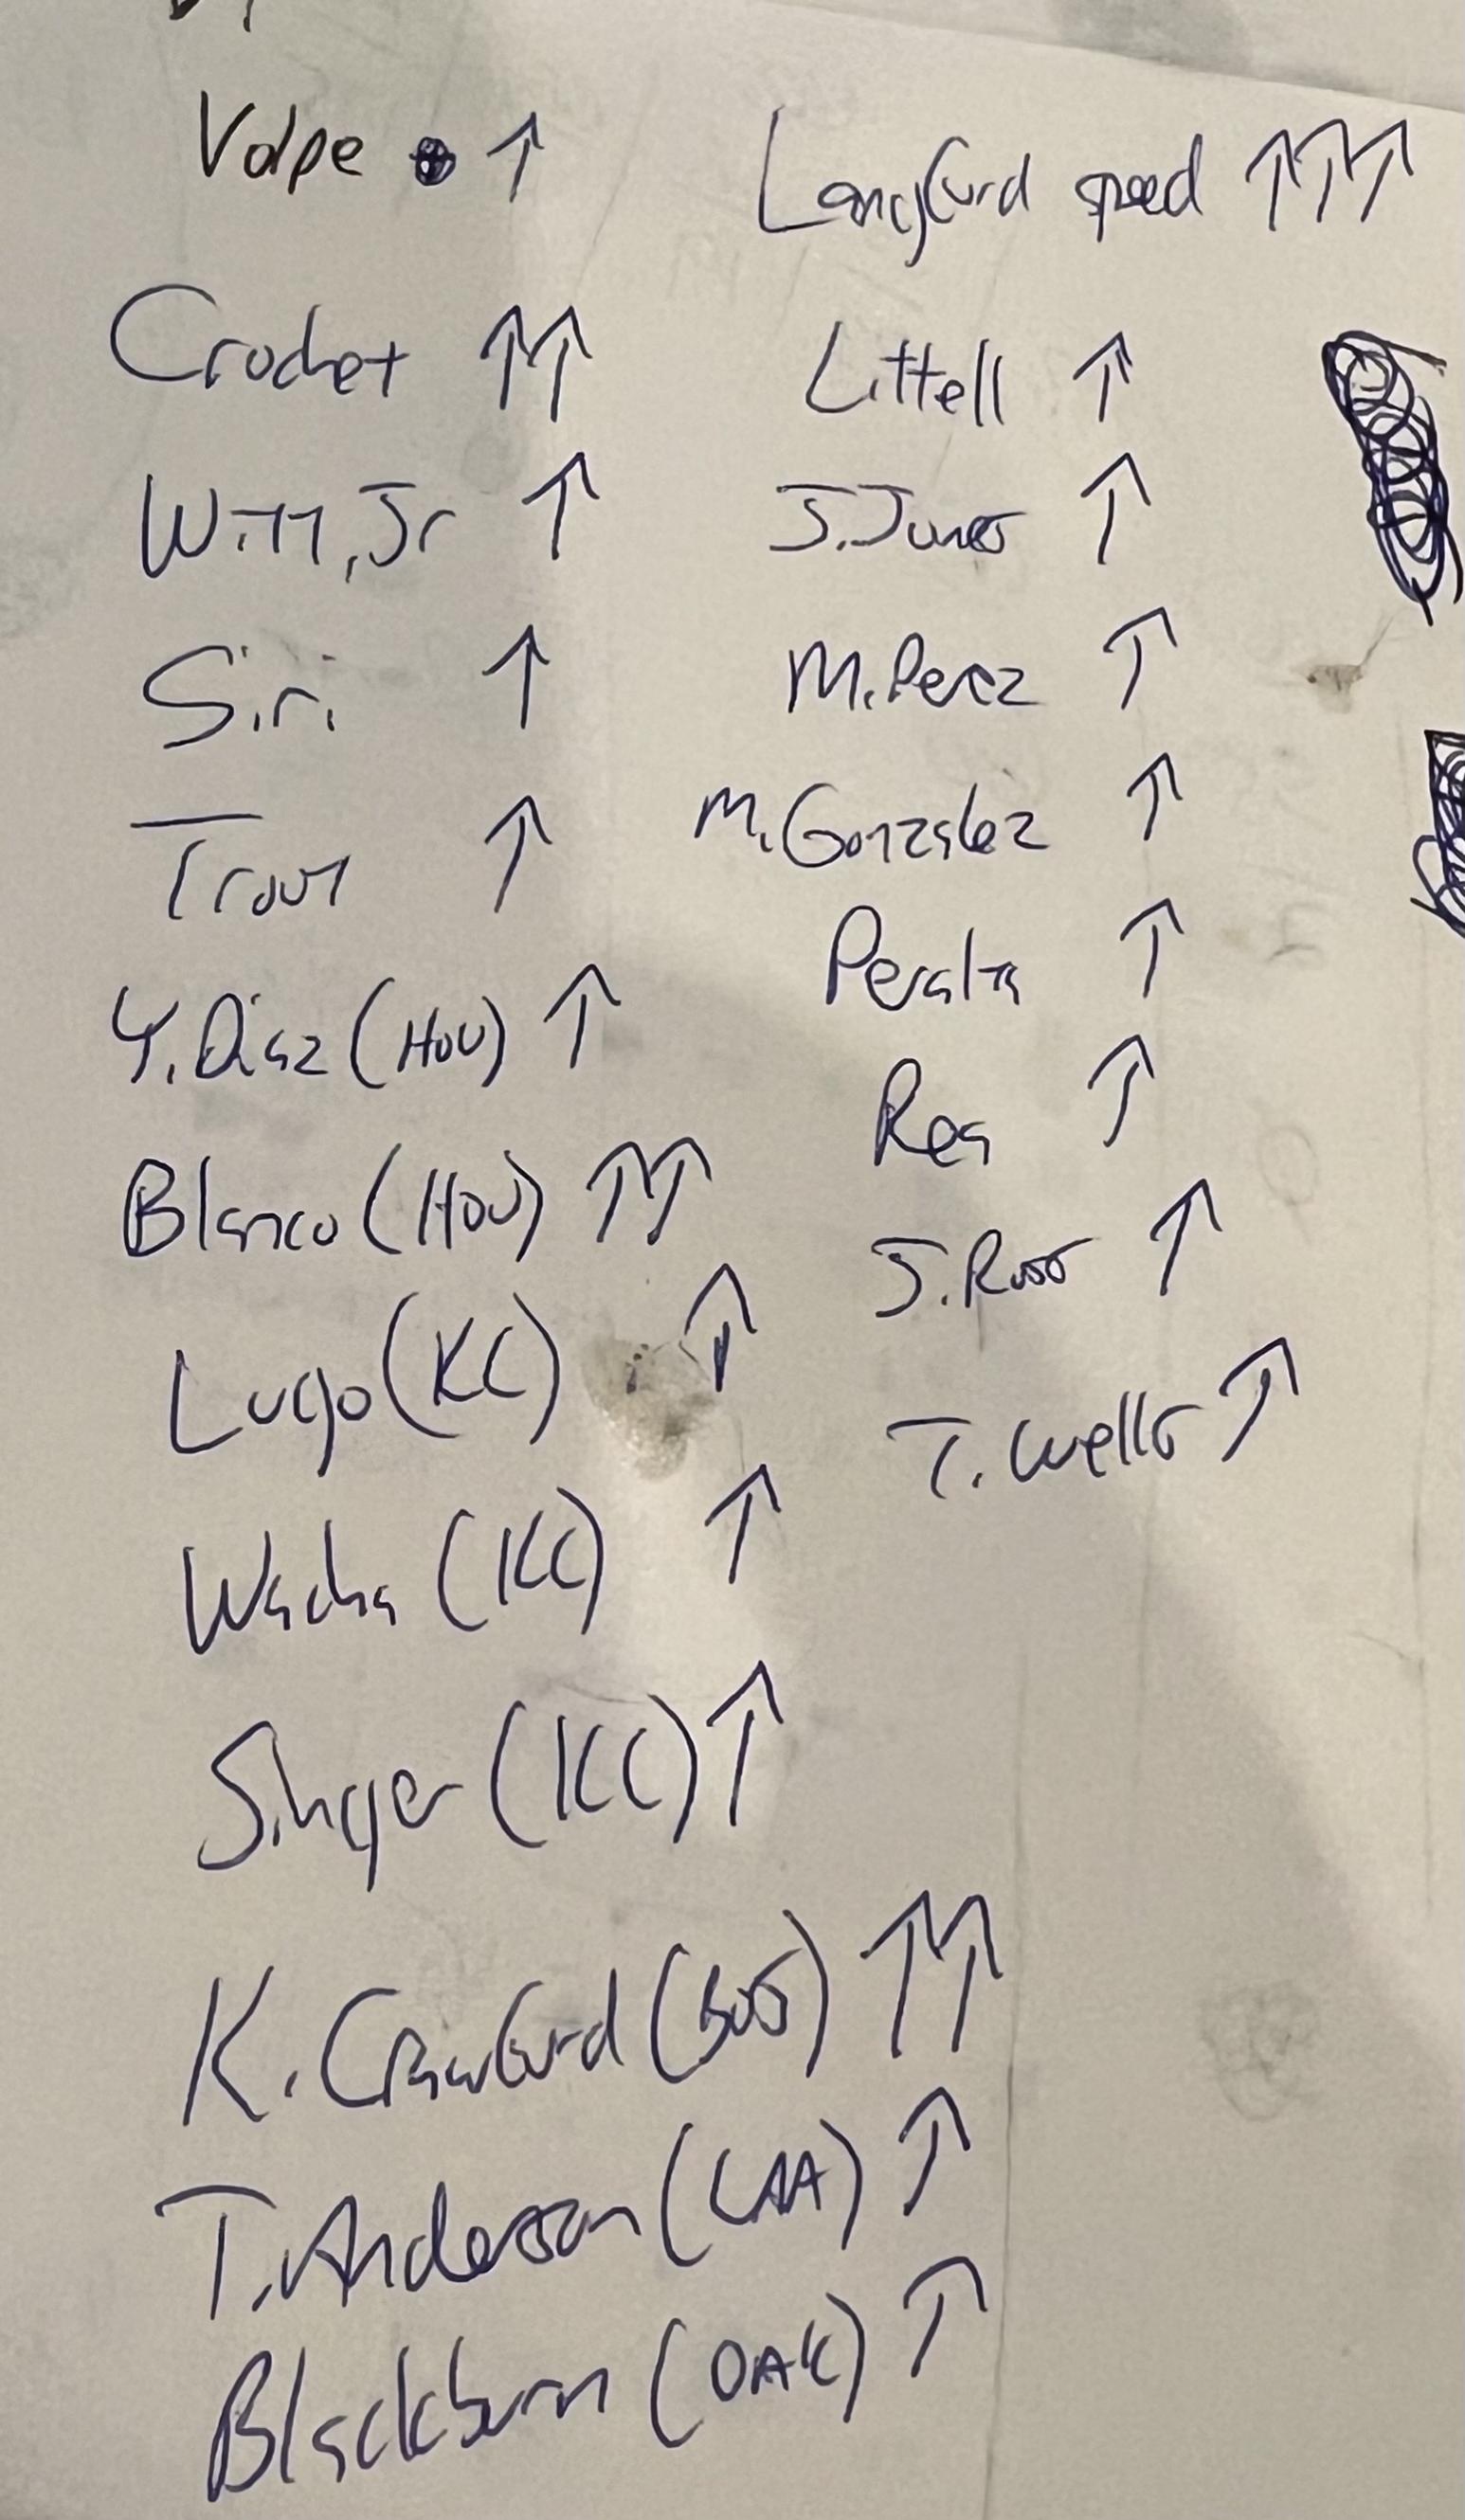 Volpe ↑
Crochet ↑↑
Witt, Jr ↑
Siri ↑
Trout ↑
Y. Diaz (HOU) ↑
Blanco (HOU) ↑↑
Lugo (KC) ↑
Wacha (KC) ↑
Singer (KC) ↑
K. Crawford (BOS) ↑↑
T. Anderson (LAA) ↑
Blackburn (OAK) ↑
Langford speed ↑↑↑
Littell ↑
J. Jones ↑
M. Perez ↑
M. Gonzalez ↑
Peralta ↑
Rea ↑
J. Ross ↑
T. Wells ↑